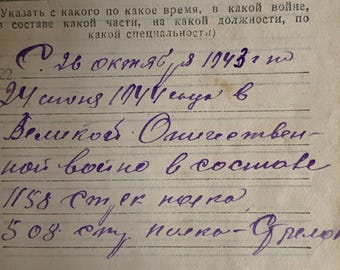 (Указать с какого по какое время, в какой войне,
в составе какой части, на какой должности, по
какой специальности)
22. С 26 октября 1943 г по
24 июня 1944 года в
Великой Отечествен-
ной войне в составе
1158 стрелк полка,
508 стр. полка - Стрелок